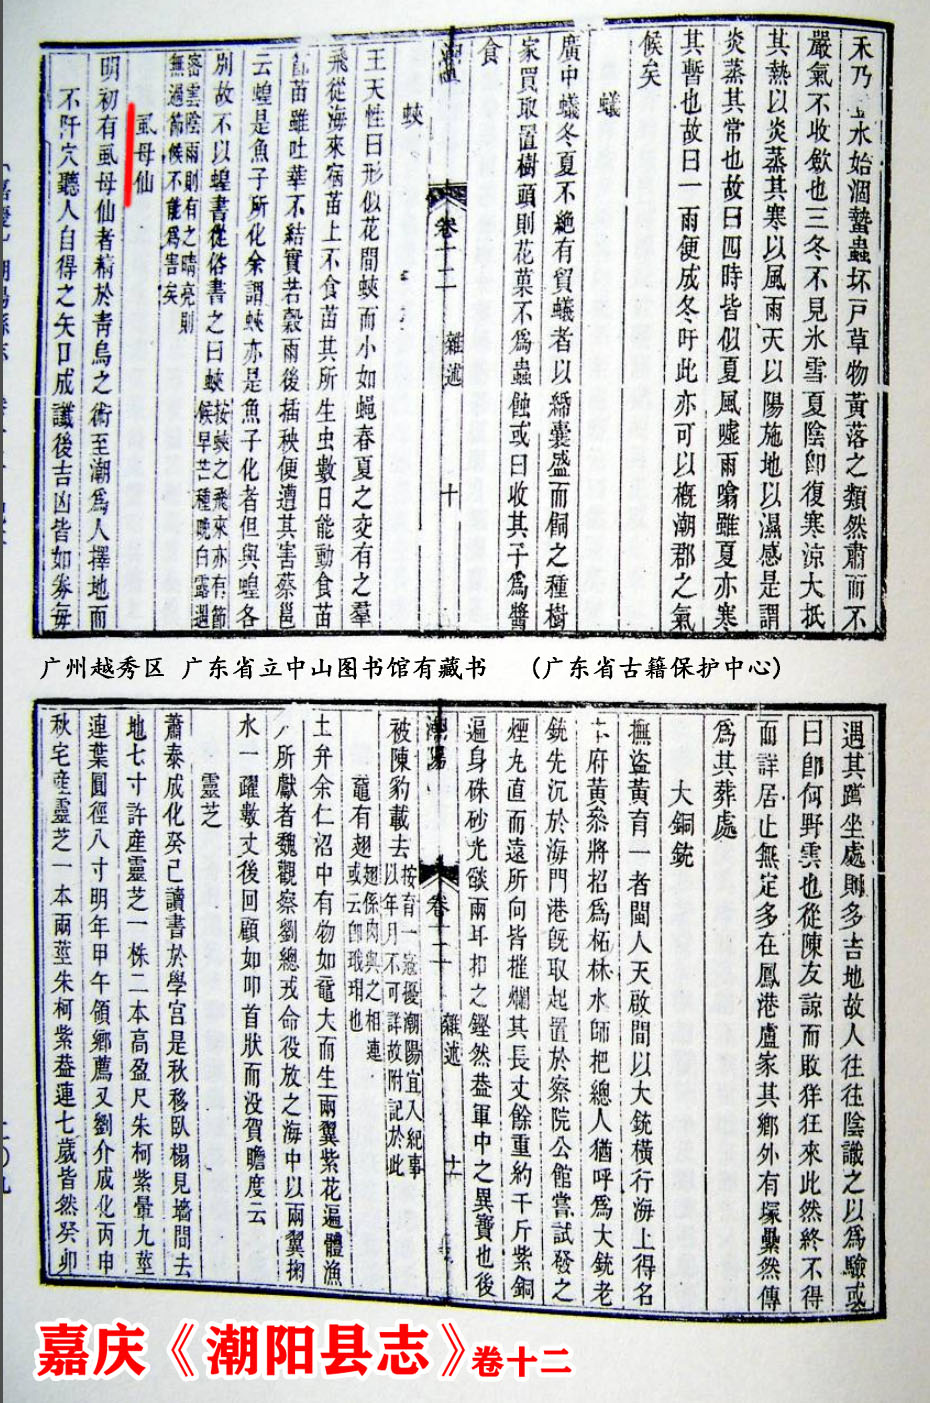 禾乃 水始涸蟄蟲坏戸草物黃落之類然肅而不
嚴氣不收斂也三冬不見氷雪夏陰卽復寒涼大抵
其熱以炎蒸其寒以風雨天以陽施地以濕感是謂
炎蒸其常也故曰四時皆似夏風噓雨噏雖夏亦寒
其暫也故曰一雨便成冬吁此亦可以槪潮郡之氣
候矣
蟻
廣中蟻冬夏不絶有貿蟻者以綈囊盛而飼之種樹
家買取置樹頭則花菓不爲蟲蝕或曰收其子爲醬
食
卷十二
雜述
十
蛺
王天性曰形似花間蛺而小如蝇春夏之交有之羣
飛從海來宿苗上不食苗其所生虫數日能動食苗
苗雖吐華不結實若榖雨後插秧便遭其害蔡邕
云蝗是魚子所化余謂蛺亦是魚子化者但與蝗各
別故不以蝗書從俗書之曰蛺 按蛺之飛來亦有節
候早芒種晚白露週
密雲陰雨則有之晴亮則
無過節候不能爲害矣
虱母仙
明初有虱母仙者精於靑烏之術至潮爲人擇地而
不阡穴聽人自得之矢口成讖後吉凶皆如券每
广州越秀区 广东省立中山图书馆有藏书 (广东省古籍保护中心)
遇其躋坐處則多吉地故人往往陰識之以爲驗或
曰卽何野雲也從陳友諒而敗佯狂來此然終不得
而詳居止無定多在鳳港盧家其鄉外有塚纍然傳
爲其葬處
大銅銃
撫盜黃育一者閩人天啟間以大銃橫行海上得名
府黃叅將招爲柘林水師把總人猶呼爲大銃老
銃先沉於海門港旣取起置於察院公館嘗試發之
煙丸直而遠所向皆摧爛其長丈餘重約千斤紫銅
遍身硃砂光燄兩耳扣之鏗然葢軍中之異寶也後
潮陽
卷十二
雜述
十一
被陳豹載去 按育一寇擾潮陽宜入紀事
以年月不可詳故附記於此
黿有翅 翅係肉與之相連
或云卽玳瑁也
土弁余仁沼中有物如黿大而生兩翼紫花遍體漁
所獻者魏觀察劉總戎命役放之海中以兩翼掬
水一躍數丈後回顧如叩首狀而没賀瞻度云
靈芝
蕭泰成化癸巳讀書於學宫是秋移臥榻見墻間去
地七寸許産靈芝一株二本高盈尺朱柯紫暈九莖
連葉圓徑八寸明年甲午領鄉薦又劉介成化丙申
秋宅産靈芝一本兩莖朱柯紫葢連七歲皆然癸卯
嘉庆《潮阳县志》卷十二